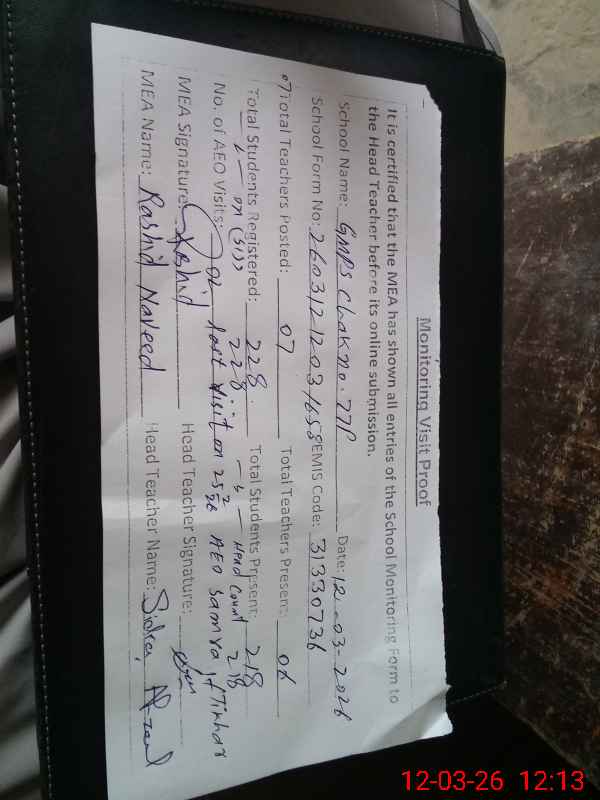 Monitoring Visit Proof
It is certified that the MEA has shown all entries of the School Monitoring Form to
the Head Teacher before its online submission.
School Name: GMPS Chak No. 77P Date: 12-03-2026
School Form No: EMIS Code: 31330736
Total Teachers Posted: 07 Total Teachers Present: 06
Total Students Registered: 228 Total Students Present: 218
on (SIS) 228 Head Count 218
No. of AEO Visits: 02 last visit on AEO Samra Iftikhar
MEA Signature: Rashid Head Teacher Signature:
MEA Name: Rashid Naveed Head Teacher Name: Afzal
12-03-26 12:13